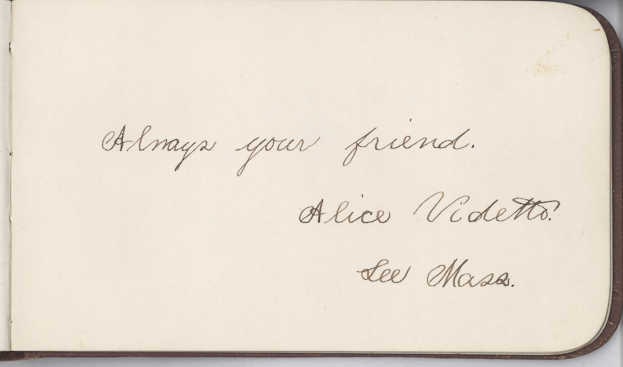 Always your friend.
Alice Videtto.
Lee Mass.